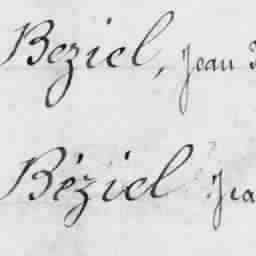 Beziel, Jean
Béziel Jea